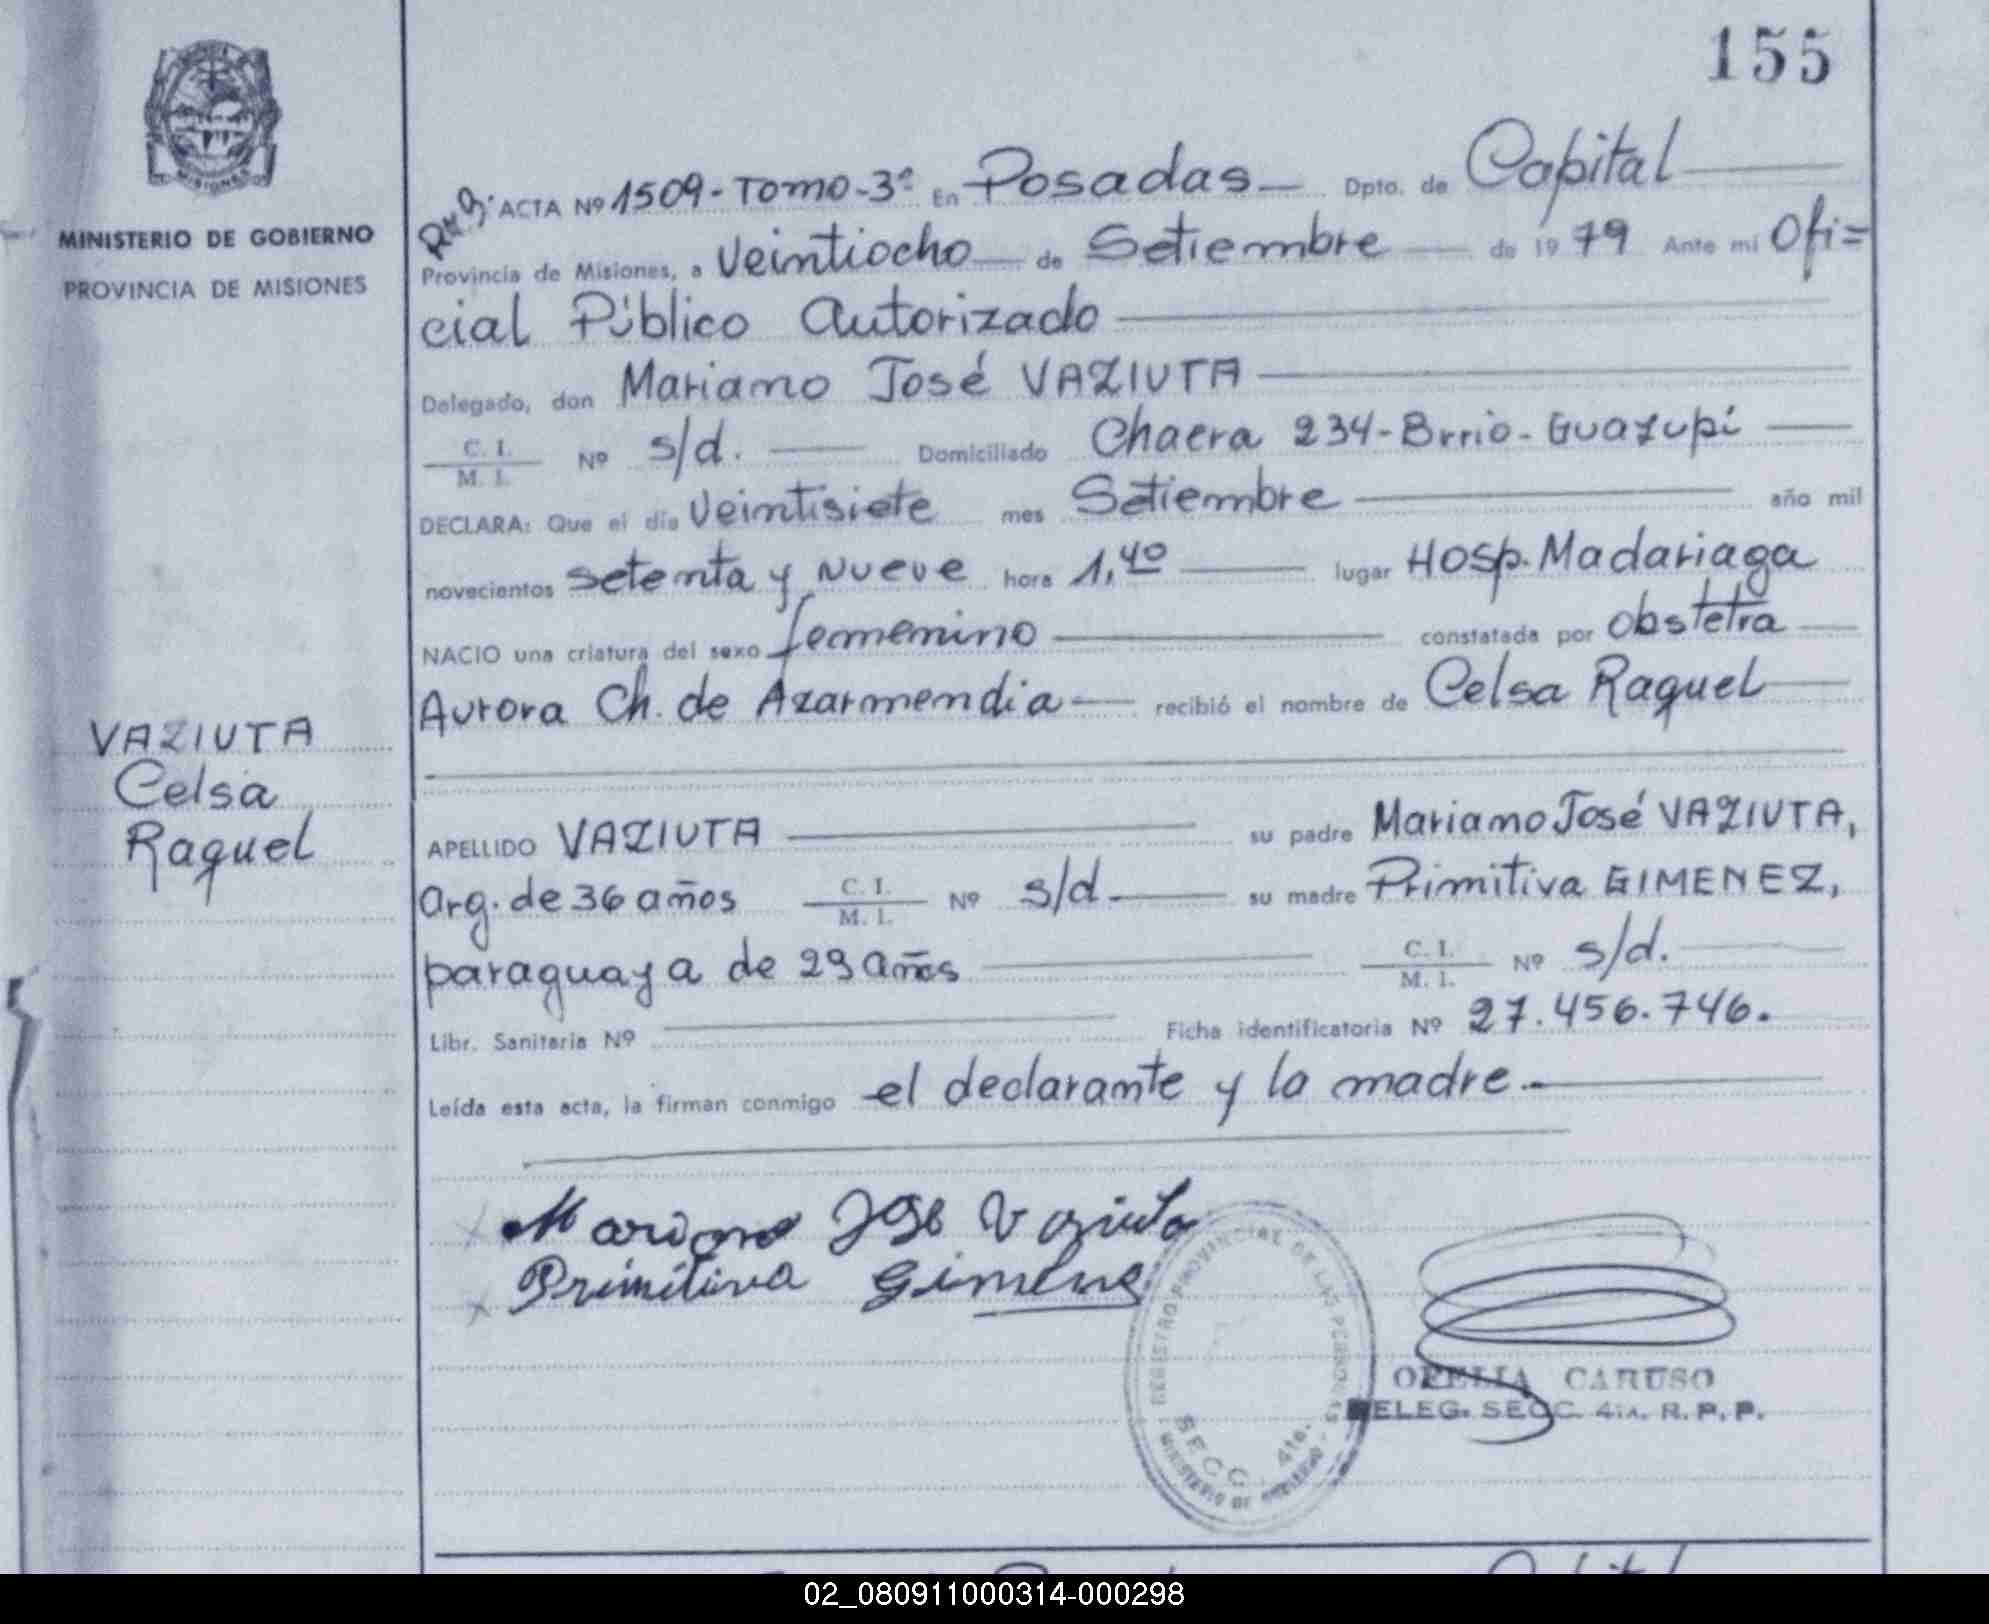 155
MISIONES
MINISTERIO DE GOBIERNO
PROVINCIA DE MISIONES
ACTA Nº 1509-Tomo-3º En Posadas Dpto. de Capital
Provincia de Misiones, a Veintiocho de Setiembre de 1979 Ante mi Ofi=
cial Público Autorizado
Delegado, don Mariano José VAZIUTA
C. I. / M. I. Nº s/d. Domiciliado Chacra 234-Brrio-Guazupí
DECLARA: Que el día Veintisiete mes Setiembre año mil
novecientos setenta y nueve hora 1,40 lugar Hosp. Madariaga
NACIO una criatura del sexo femenino constatada por Obstetra
Aurora Ch. de Azarmendia recibió el nombre de Celsa Raquel
VAZIUTA
Celsa
Raquel
APELLIDO VAZIUTA su padre Mariano José VAZIUTA,
Arg. de 36 años C. I. / M. I. Nº s/d su madre Primitiva GIMENEZ,
paraguaya de 29 años C. I. / M. I. Nº s/d.
Libr. Sanitaria Nº Ficha identificatoria Nº 27.456.746.
Leída esta acta, la firman conmigo el declarante y la madre.
Mariano José Vaziuta
Primitiva Gimenez
REGISTRO PROVINCIAL DE LAS PERSONAS
SECC. 4ta.
MINISTERIO DE GOBIERNO
OFELIA CARUSO
DELEG. SECC. 4ta. R. P. P.
02_080911000314-000298